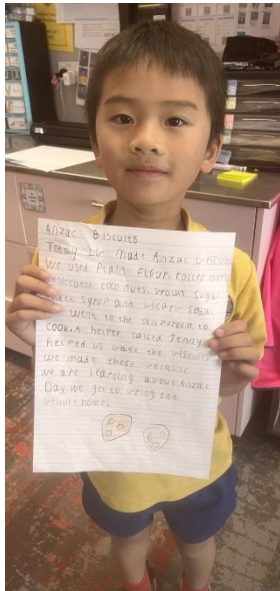 Anzac Biscuits
Today we made Anzac biscuits
We used Plain Flour, rolled oats
desiccated coconuts, brown sugar
syrup and bicarb soda.
went to the to
COOK. A helper called Jenny
helped us make the biscuits
we made these because
we are learning about Anzac
Day. We get to bring one
biscuit home.